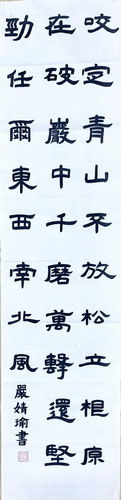 咬定青山不放松立根原
在破巖中千磨萬擊還堅
勁任爾東西南北風
嚴婧瑜書